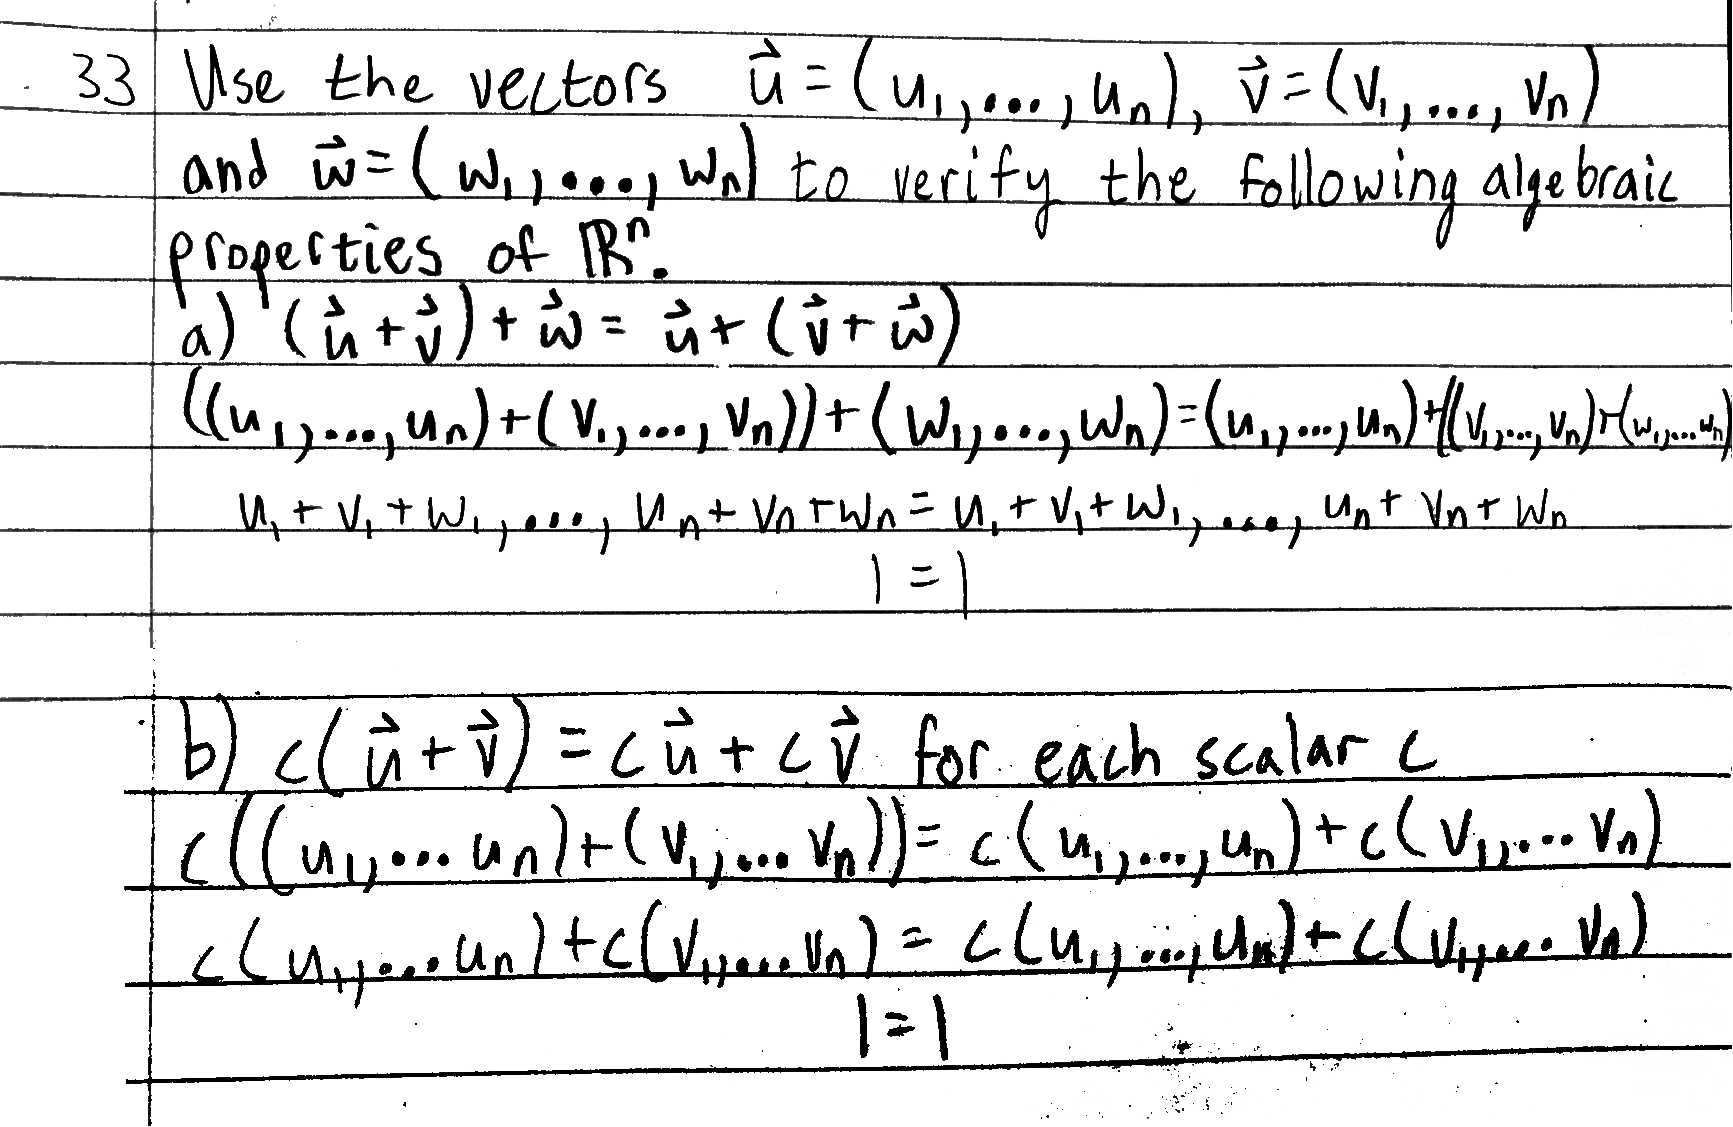 33 Use the vectors u⃗ = (u₁,..., uₙ), v⃗ = (v₁,..., vₙ)
and w⃗ = (w₁,..., wₙ) to verify the following algebraic
properties of ℝⁿ.
a) (u⃗ + v⃗) + w⃗ = u⃗ + (v⃗ + w⃗)
((u₁,..., uₙ) + (v₁,..., vₙ)) + (w₁,..., wₙ) = (u₁,..., uₙ) + ((v₁,..., vₙ) + (w₁,... wₙ)
u₁ + v₁ + w₁,..., uₙ + vₙ + wₙ = u₁ + v₁ + w₁,..., uₙ + vₙ + wₙ
1 = 1
b) c(u⃗ + v⃗) = cu⃗ + cv⃗ for each scalar c
c((u₁,... uₙ) + (v₁,... vₙ)) = c(u₁,..., uₙ) + c(v₁,... vₙ)
c(u₁,... uₙ) + c(v₁,... vₙ) = c(u₁,..., uₙ) + c(v₁,... vₙ)
1 = 1